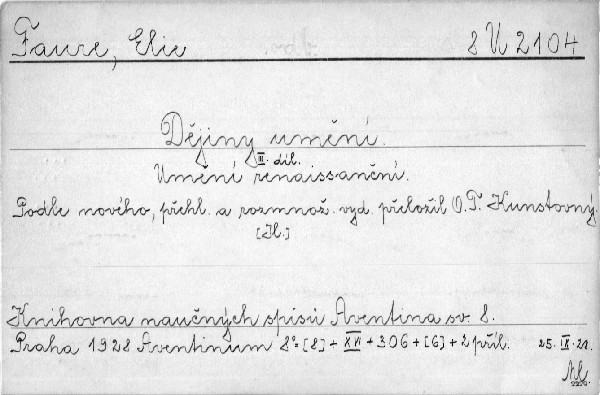 Faure, Elie 8 U 2104
Dějiny umění.
III. díl.
Umění renaissanční.
Podle nového, přehl. a rozmnož. vyd. přeložil O.T. Kunstovný.
[Il.]
Knihovna naučných spisů Aventina sv. 8.
Praha 1928 Aventinum 8° [8] + XVI + 306 + [6] + 2 příl. 25. IX. 28.